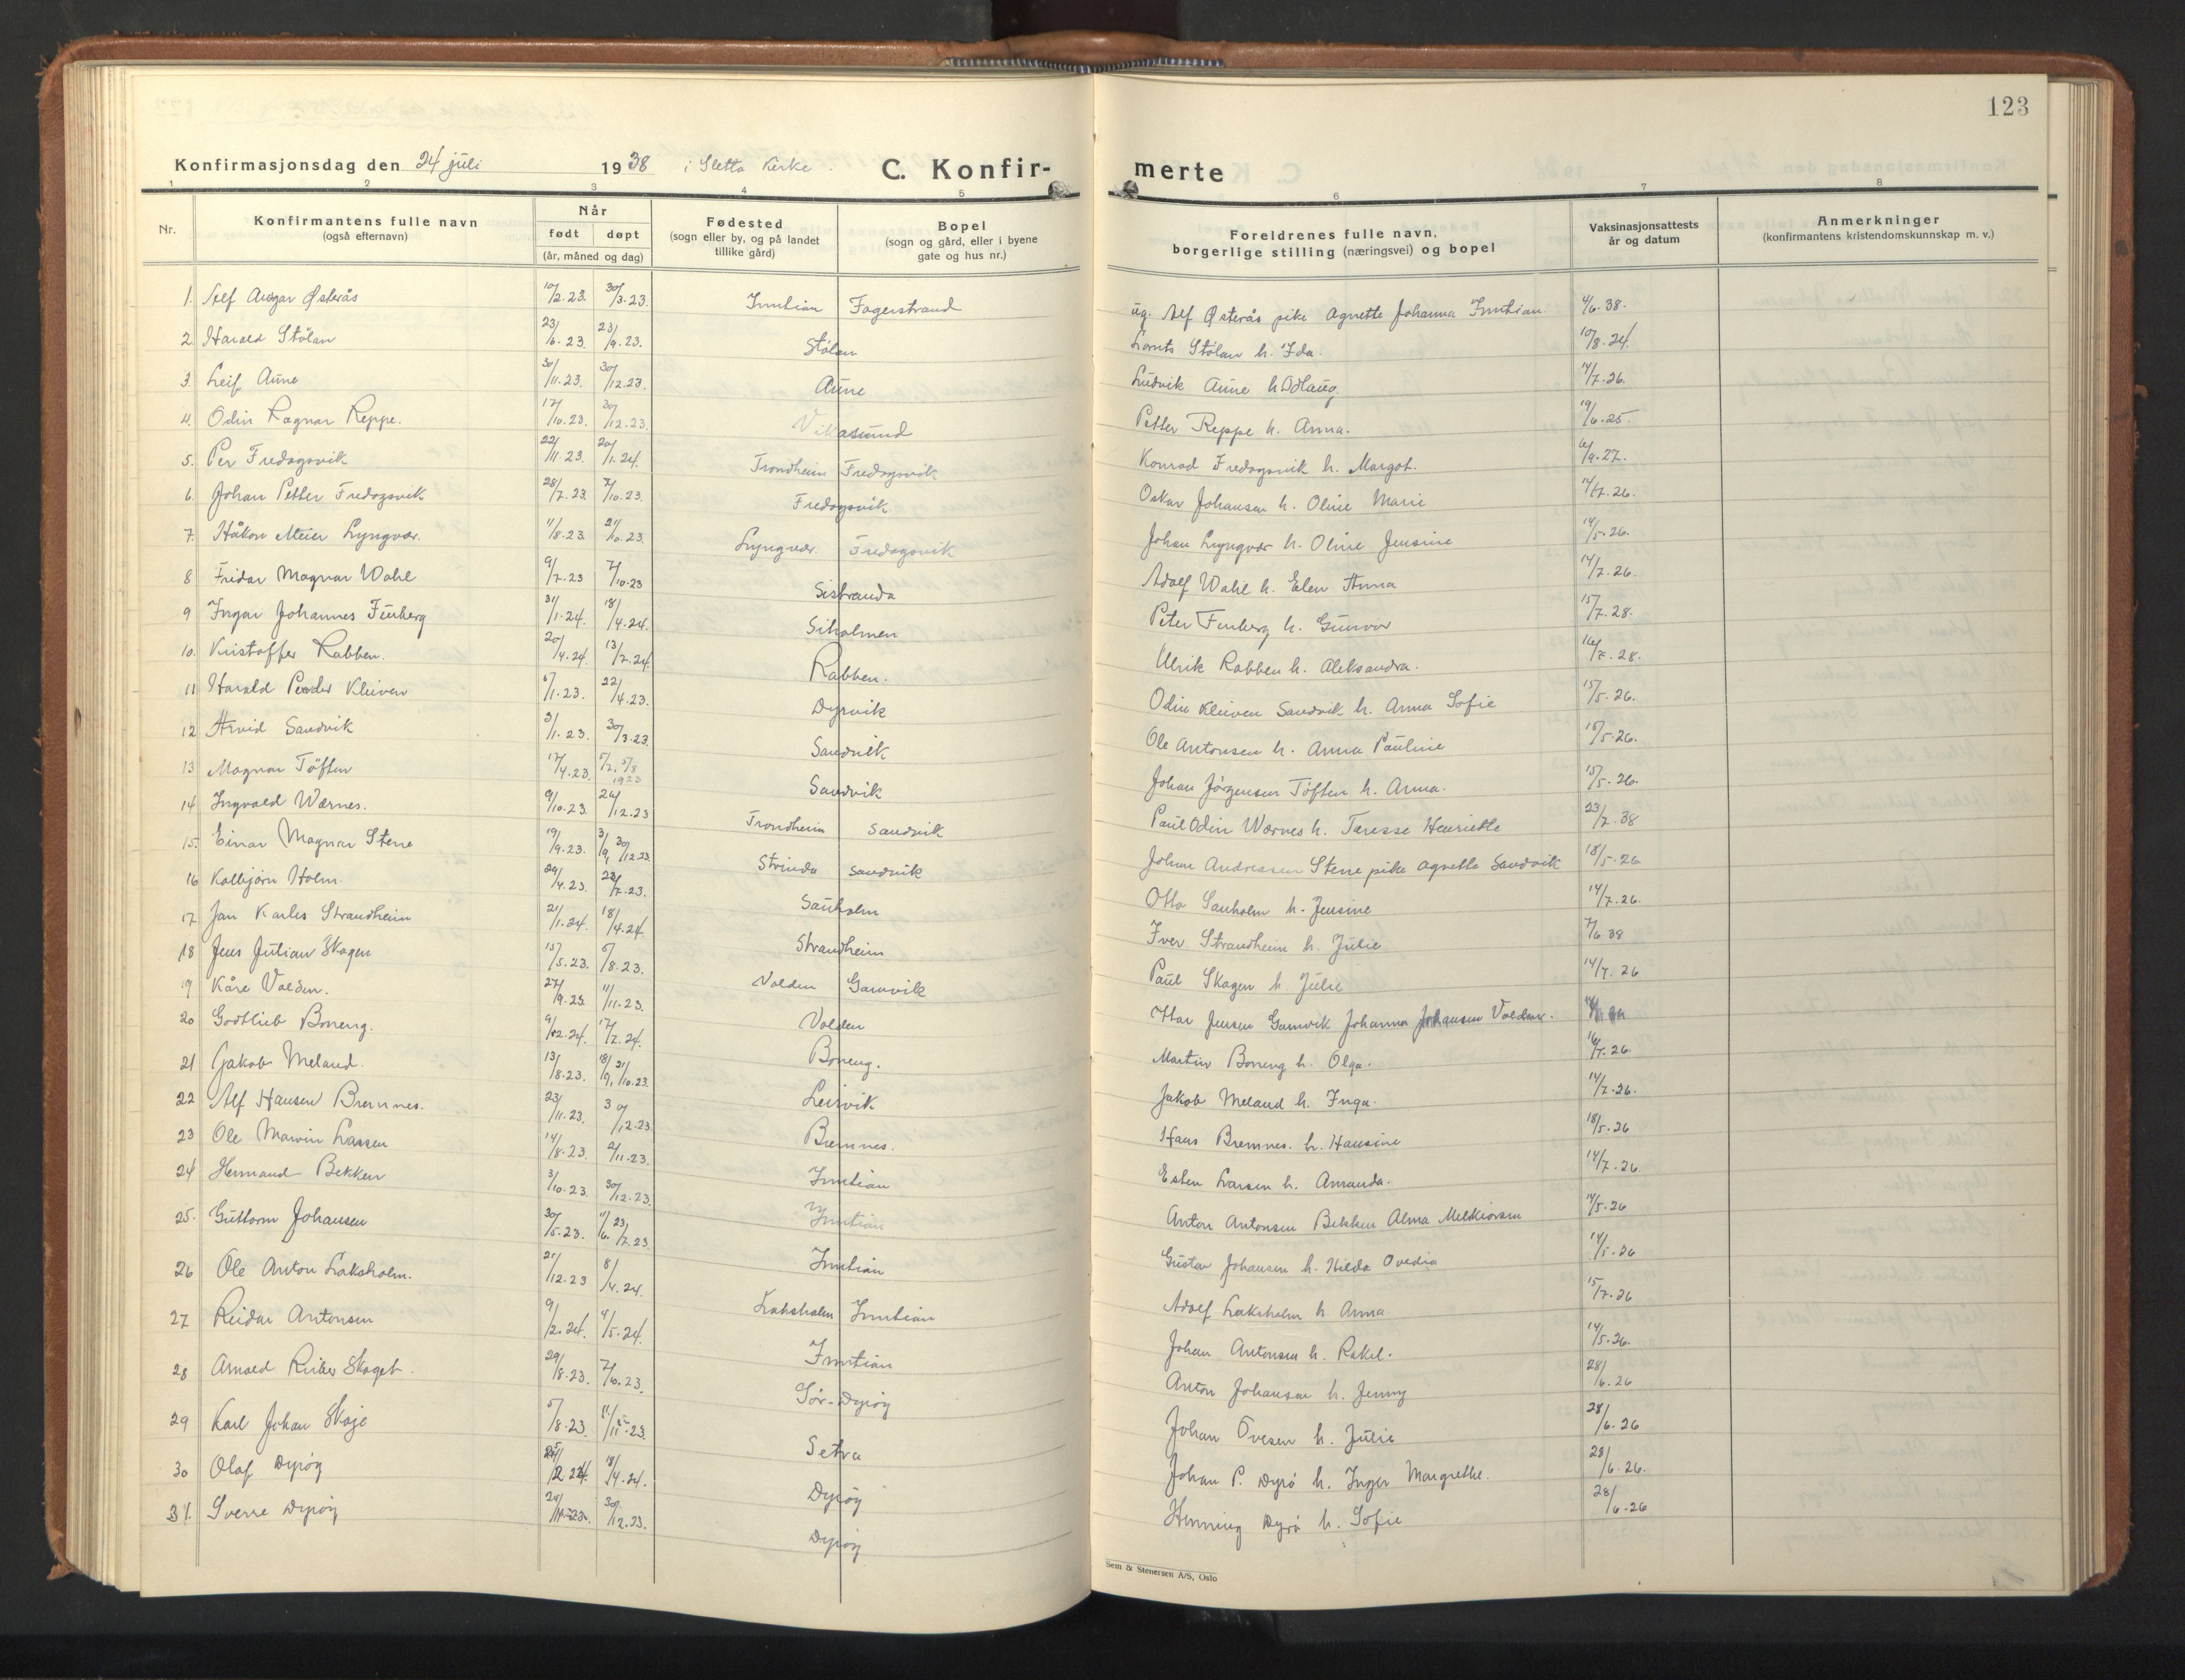 123
Konfirmasjonsdag den 24 juli 1938 i Sletta Kirke. C. Konfir- merte
1 2 3 4 5 6 7 8
Nr. Konfirmantens fulle navn (også efternavn) Når født døpt (år, måned og dag) Fødested (sogn eller by, og på landet tillike gård) Bopel (sogn og gård, eller i byene gate og hus nr.) Foreldrenes fulle navn, borgerlige stilling (næringsvei) og bopel Vaksinasjonsattests år og datum Anmerkninger (konfirmantens kristendomskunnskap m. v.)
1. Alf Østerås 10/2.23. 30/3.23. Inntian Fagerstrand ug. Alf Østerås pike Agnette Johanna Inntian. 4/6.38.
2 Harald Stølan 23/6.23. 23/9.23. Stølan Lornts Stølan h. Ida. 10/8.24.
3. Leif Aune 30/11.23. 30/12.23. Aune Ludvik Aune h. 14/7.26.
4. Odin Ragnar Reppe. 17/10.23. 30/12.23. Vikasund Petter Reppe h. Anna. 19/6.25.
5. Per Fredagsvik 22/11.23. 20/1.24. Trondheim Fredagsvik Konrad Fredagsvik h. Margot. 6/9.27.
6. Johan Petter Fredagsvik 28/7.23. 7/10.23. Fredagsvik Oskar Johansen h. Oline Marie 14/7.26.
7. Håkon Meier Lyngvær. 11/8.23. 21/10.23. Lyngvær. Fredagsvik Johan Lyngvær h. Oline Jensine 14/5.26.
8 Fridar Magnar Wahl 9/7.23 7/10.23 Sistranda Adolf Wahl h. Elen Anna 14/7.26.
9 Ingar Johannes Finberg 31/1.24. 18/4.24. Siholmen Peter Finberg h. Gunvor 15/7.28.
10. Kristoffer Rabben. 20/4.24. 13/7.24. Rabben. Ulrik Rabben h. Aleksandra. 16/7.28.
11 Harald Peder Kleiven 6/1.23. 22/4.23. Dyrvik Odin Kleiven Sandvik h. Anna Sofie 15/5.26.
12 Arvid Sandvik 3/1.23. 30/3.23. Sandvik Ole Antonsen h. Anna Pauline 18/5.26.
13 Magnar Tøften 17/4.23. 5/8 1923 Sandvik Johan Jørgensen Tøften h. Anna. 15/5.26.
14 Ingvald Wærnes. 9/10.23. 26/12.23 Trondheim Sandvik Paul Odin Wærnes h. Taresse Henriette 23/7.38
15. Einar Magnar Stene 19/9.23. 3/9, 30/12.23. Strinda Sandvik Johan Andreasen Stene pike Agnette Sandvik 18/5.26
16 Kolbjørn Holm. 29/4.23. 22/7.23. Sauholm Otto Sauholm h. Jensine 14/7.26.
17. Jan Karles Strandheim 21/1.24. 18/4.24. Strandheim Iver Strandheim h. Julie 7/6 38
18 Jens Julian Skagen 15/5.23. 5/8.23. Volden Gamvik Paul Skagen h. Julie 14/7.26
19 Kåre Volden. 27/9.23. 11/11.23. Volden Jensen Gamvik Johanna Johansen Volden.
20 Godtlieb Boneng. 9/2.24. 17/7.24. Boneng. Martin Boneng h. Olga. 16/7.26
21 Jakob Meland. 13/8.23. 18/9, 21/10.23. Leirvik Jakob Meland h. Inga. 14/7.26.
22 Alf Hansen Bremnes. 23/11.23. 30/12.23 Bremnes. Hans Bremnes. h. Hansine 18/5.26
23 Ole Marvin Larsen 14/8.23. 11.23. Inntian Esten Larsen h. Amanda. 14/7.26
24 Hermand Bekken 3/10.23. 30/12.23. Inntian Anton Antonsen Bekken Alma Melkiorsen 14/5.26
25. Guttorm Johansen 30/5.23. 11/6. 23/7.23. Inntian Gustav Johansen h. Hilda Ovedia 14/5.26
26 Ole Anton Laksholm. 21/12.23 8/4.24. Laksholm Inntian Adolf Laksholm h Anna 15/7.26
27 Reidar Antonsen 9/2.24. 4/5.24. Inntian Johan Antonsen h. Rakel. 14/5.26.
28 Arnold Skaget. 29/8.23. 7/10.23. Sør-Dyrøy Anton Johansen h. Jenny 28/6.26
29 Karl Johan Skaje 5/8.23. 11/11.23. Setra Johan Ovesen h. Julie 28/6.26
30 Olaf Dyrøy 2.24. 18/4.24. Dyrøy Johan P. Dyrø h. Inger Margrethe. 28/6.26.
31. Sverre Dyrøy 30/12.23. Dyrøy Henning Dyrø h. Sofie 28/6.26
Sem & Stenersen A/S, Oslo